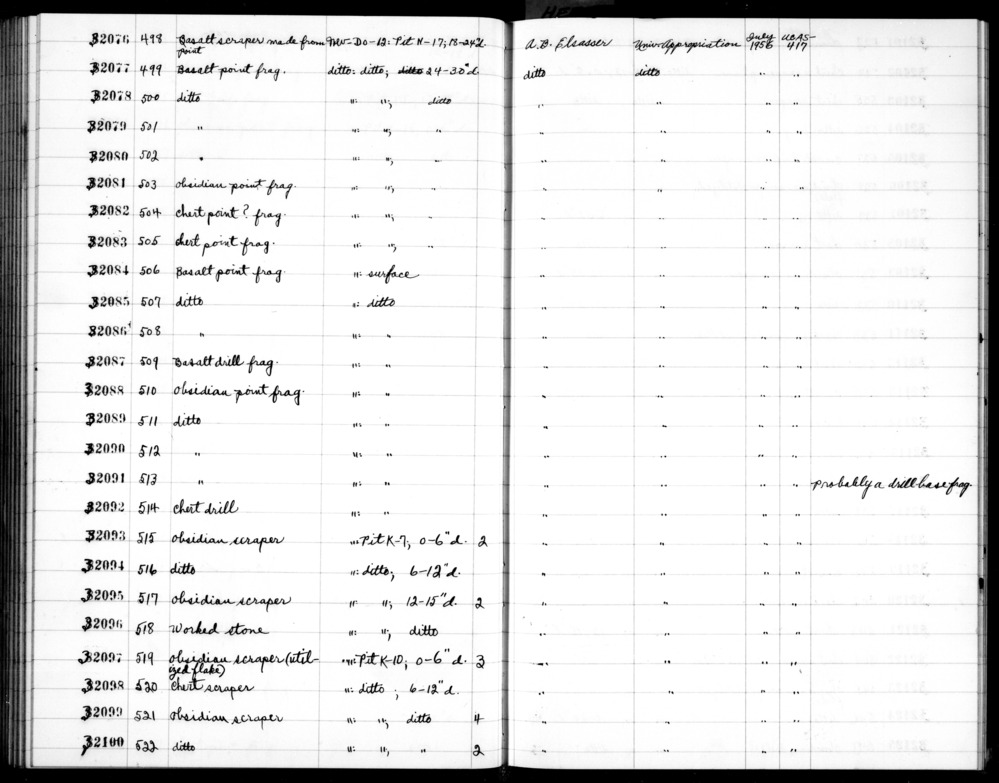 32076 498 Basalt scraper made from point Nev-Do-12: Pit N-17; 18-24"d. A.B. Elsasser Univ. Appropriation July 1956 UCAS-417
32077 499 Basalt point frag. ditto: ditto; ditto 24-30"d. ditto ditto " "
32078 500 ditto ": "; ditto " " " "
32079 501 " ": "; " " " " "
32080 502 " ": "; " " " " "
32081 503 obsidian point frag. ": "; " " " " "
32082 504 chert point? frag. ": "; " " " " "
32083 505 chert point frag. ": "; " " " " "
32084 506 Basalt point frag. ": surface " " " "
32085 507 ditto ": ditto " " " "
32086 508 " ": " " " " "
32087 509 Basalt drill frag. ": " " " " "
32088 510 obsidian point frag. ": " " " " "
32089 511 ditto ": " " " " "
32090 512 " ": " " " " "
32091 513 " ": " " " " " Probably a drill base frag.
32092 514 chert drill ": " " " " "
32093 515 obsidian scraper ": Pit K-7; 0-6"d. 2 " " " "
32094 516 ditto ": ditto; 6-12"d. " " " "
32095 517 obsidian scraper " "; 12-15"d. 2 " " " "
32096 518 Worked stone ": "; ditto " " " "
32097 519 obsidian scraper (utilized flake) ": Pit K-10; 0-6"d. 3 " " " "
32098 520 chert scraper ": ditto; 6-12"d. " " " "
32099 521 obsidian scraper ": "; ditto 4 " " " "
32100 522 ditto ": "; " 2 " " " "